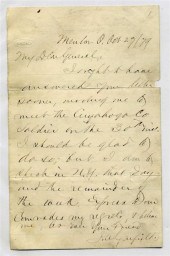 Mentor O. Oct 27/79
My Dear General;
I ought to have
answered your letter
sooner, inviting me to
meet the Cuyahoga Co
Soldiers on the 30th inst
I should be glad to
do so, but I am to
speak in N.Y. that day
and the remainder of
the week. Express to
Comrades my regrets, & believe
me, as ever Yours
J.A. Garfield